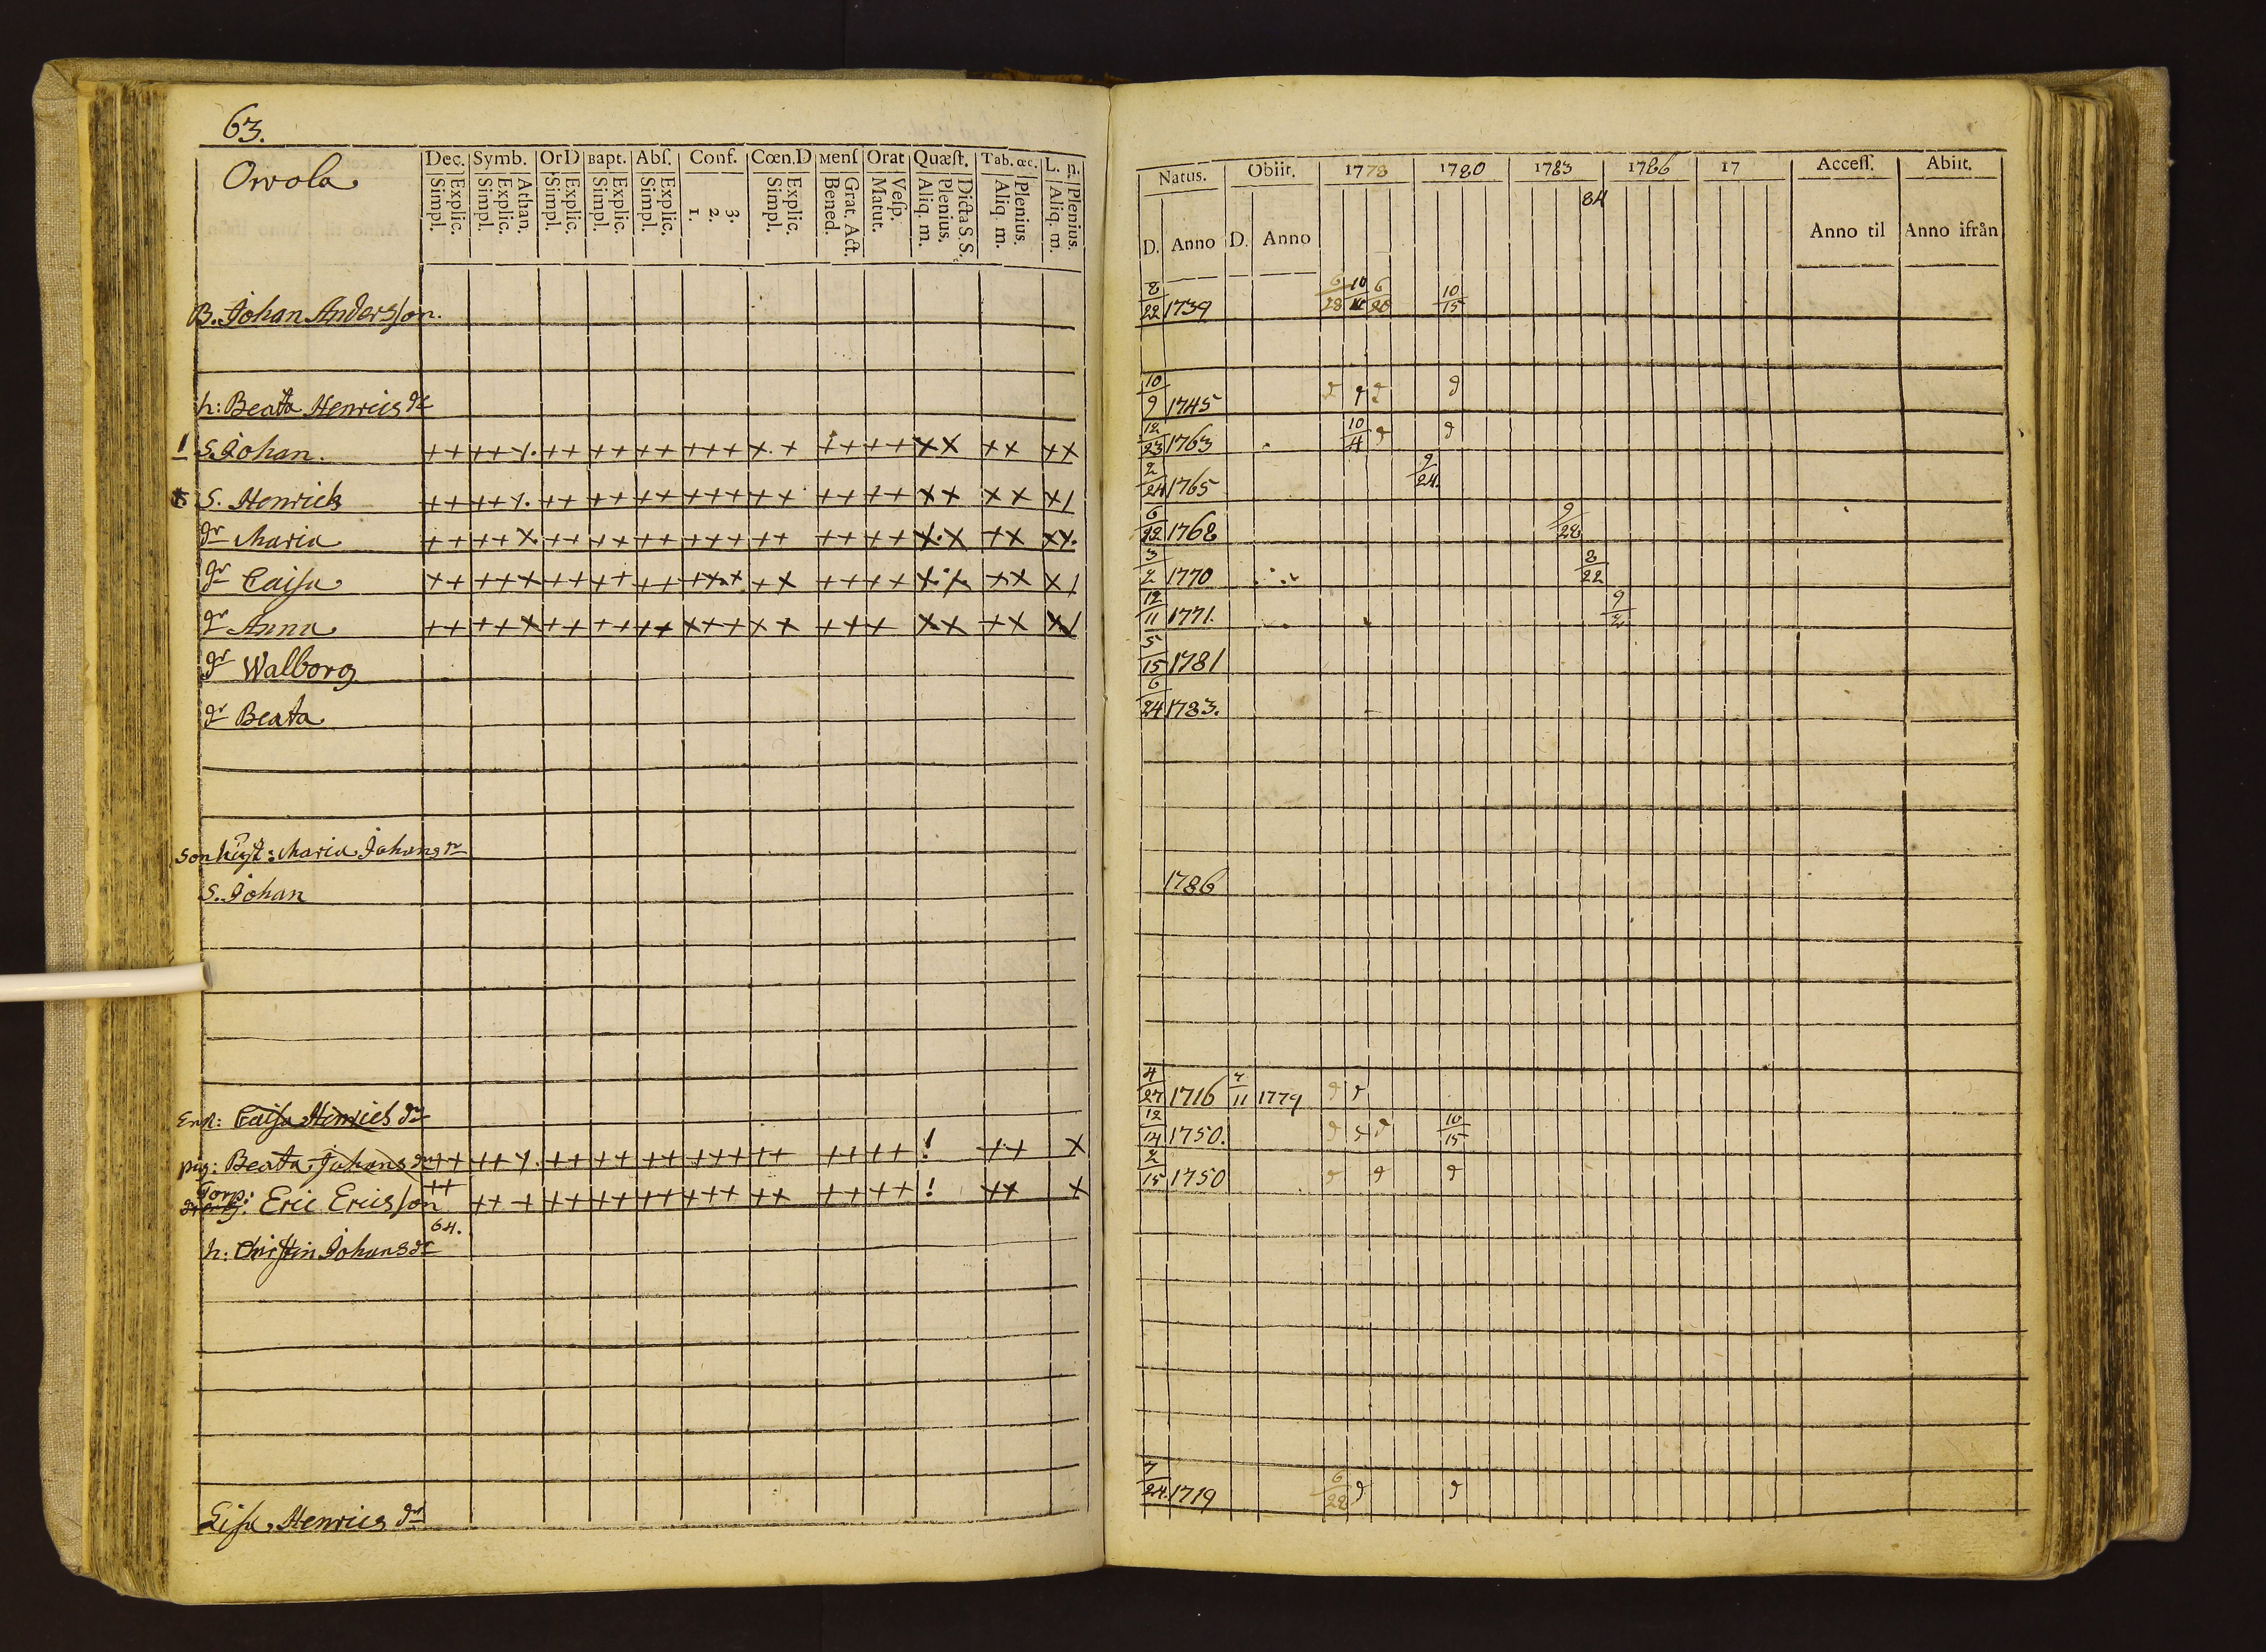 63.
Orvola
Dec. Symb. Or D Bapt. Abſ. Conf. Cœn.D Menſ Orat Quæſt. Tab. œc. L. n.
Explic. Simpl. Athan. Explic. Simpl. Explic. Simpl. Explic. Simpl. Explic. Simpl. 3. 2. 1. Explic. Simpl. Grat. Act. Bened. Veſp. Matut. Dicta S.S. Plenius. Aliq. m. Plenius. Aliq. m. Plenius. Aliq. m.
B. Johan Andersson.
h: Beata Henricsdr
1 S. Johan. ++ +++. ++ ++ ++ +++ ++ ++ ++ ++ ++ ++
S. Henrich ++ +++. ++ ++ ++ +++ ++ ++ ++ ++ ++ +/
dr Maria ++ +++ ++ ++ ++ +++ ++ ++ ++ ++ ++ ++
dr Caisa ++ +++ ++ ++ ++ +++ ++ ++ ++ ++ ++ +/
dr Anna ++ +++ ++ ++ ++ +++ ++ ++ + ++ ++ +/
dr Walborg
dr Beata
Sonhust: Maria Johansdr
S. Johan
Enk: Caisa Henrichsdr
pig: Beata Johansdr ++ +++ ++ ++ ++ +++ ++ ++ ++ ! ++ +
Torp:
dreng: Eric Ericsson ++ ++ + ++ ++ ++ +++ ++ ++ ++ ! ++ +
64.
h: Christin Johansdr
Lisa Henricsdr
Natus. Obiit. 1778 1780 1783 1786 17 Acceſſ. Abiit.
84
D. Anno D. Anno Anno til Anno ifrån
8/22 1739 6/28 10/4 6/20 10/15
10/9 1745 d d d d
12/23 1763 10/4 d d
2/24 1765 9/24.
6/12 1768 9/28
3/2 1770 8/22
12/11 1771. 9/2
5/15 1781
6/24 1783.
1786
4/27 1716 7/11 1779 d d
12/14 1750. d d d 10/15
2/15 1750 d d d
7/24. 1719 6/28 d d